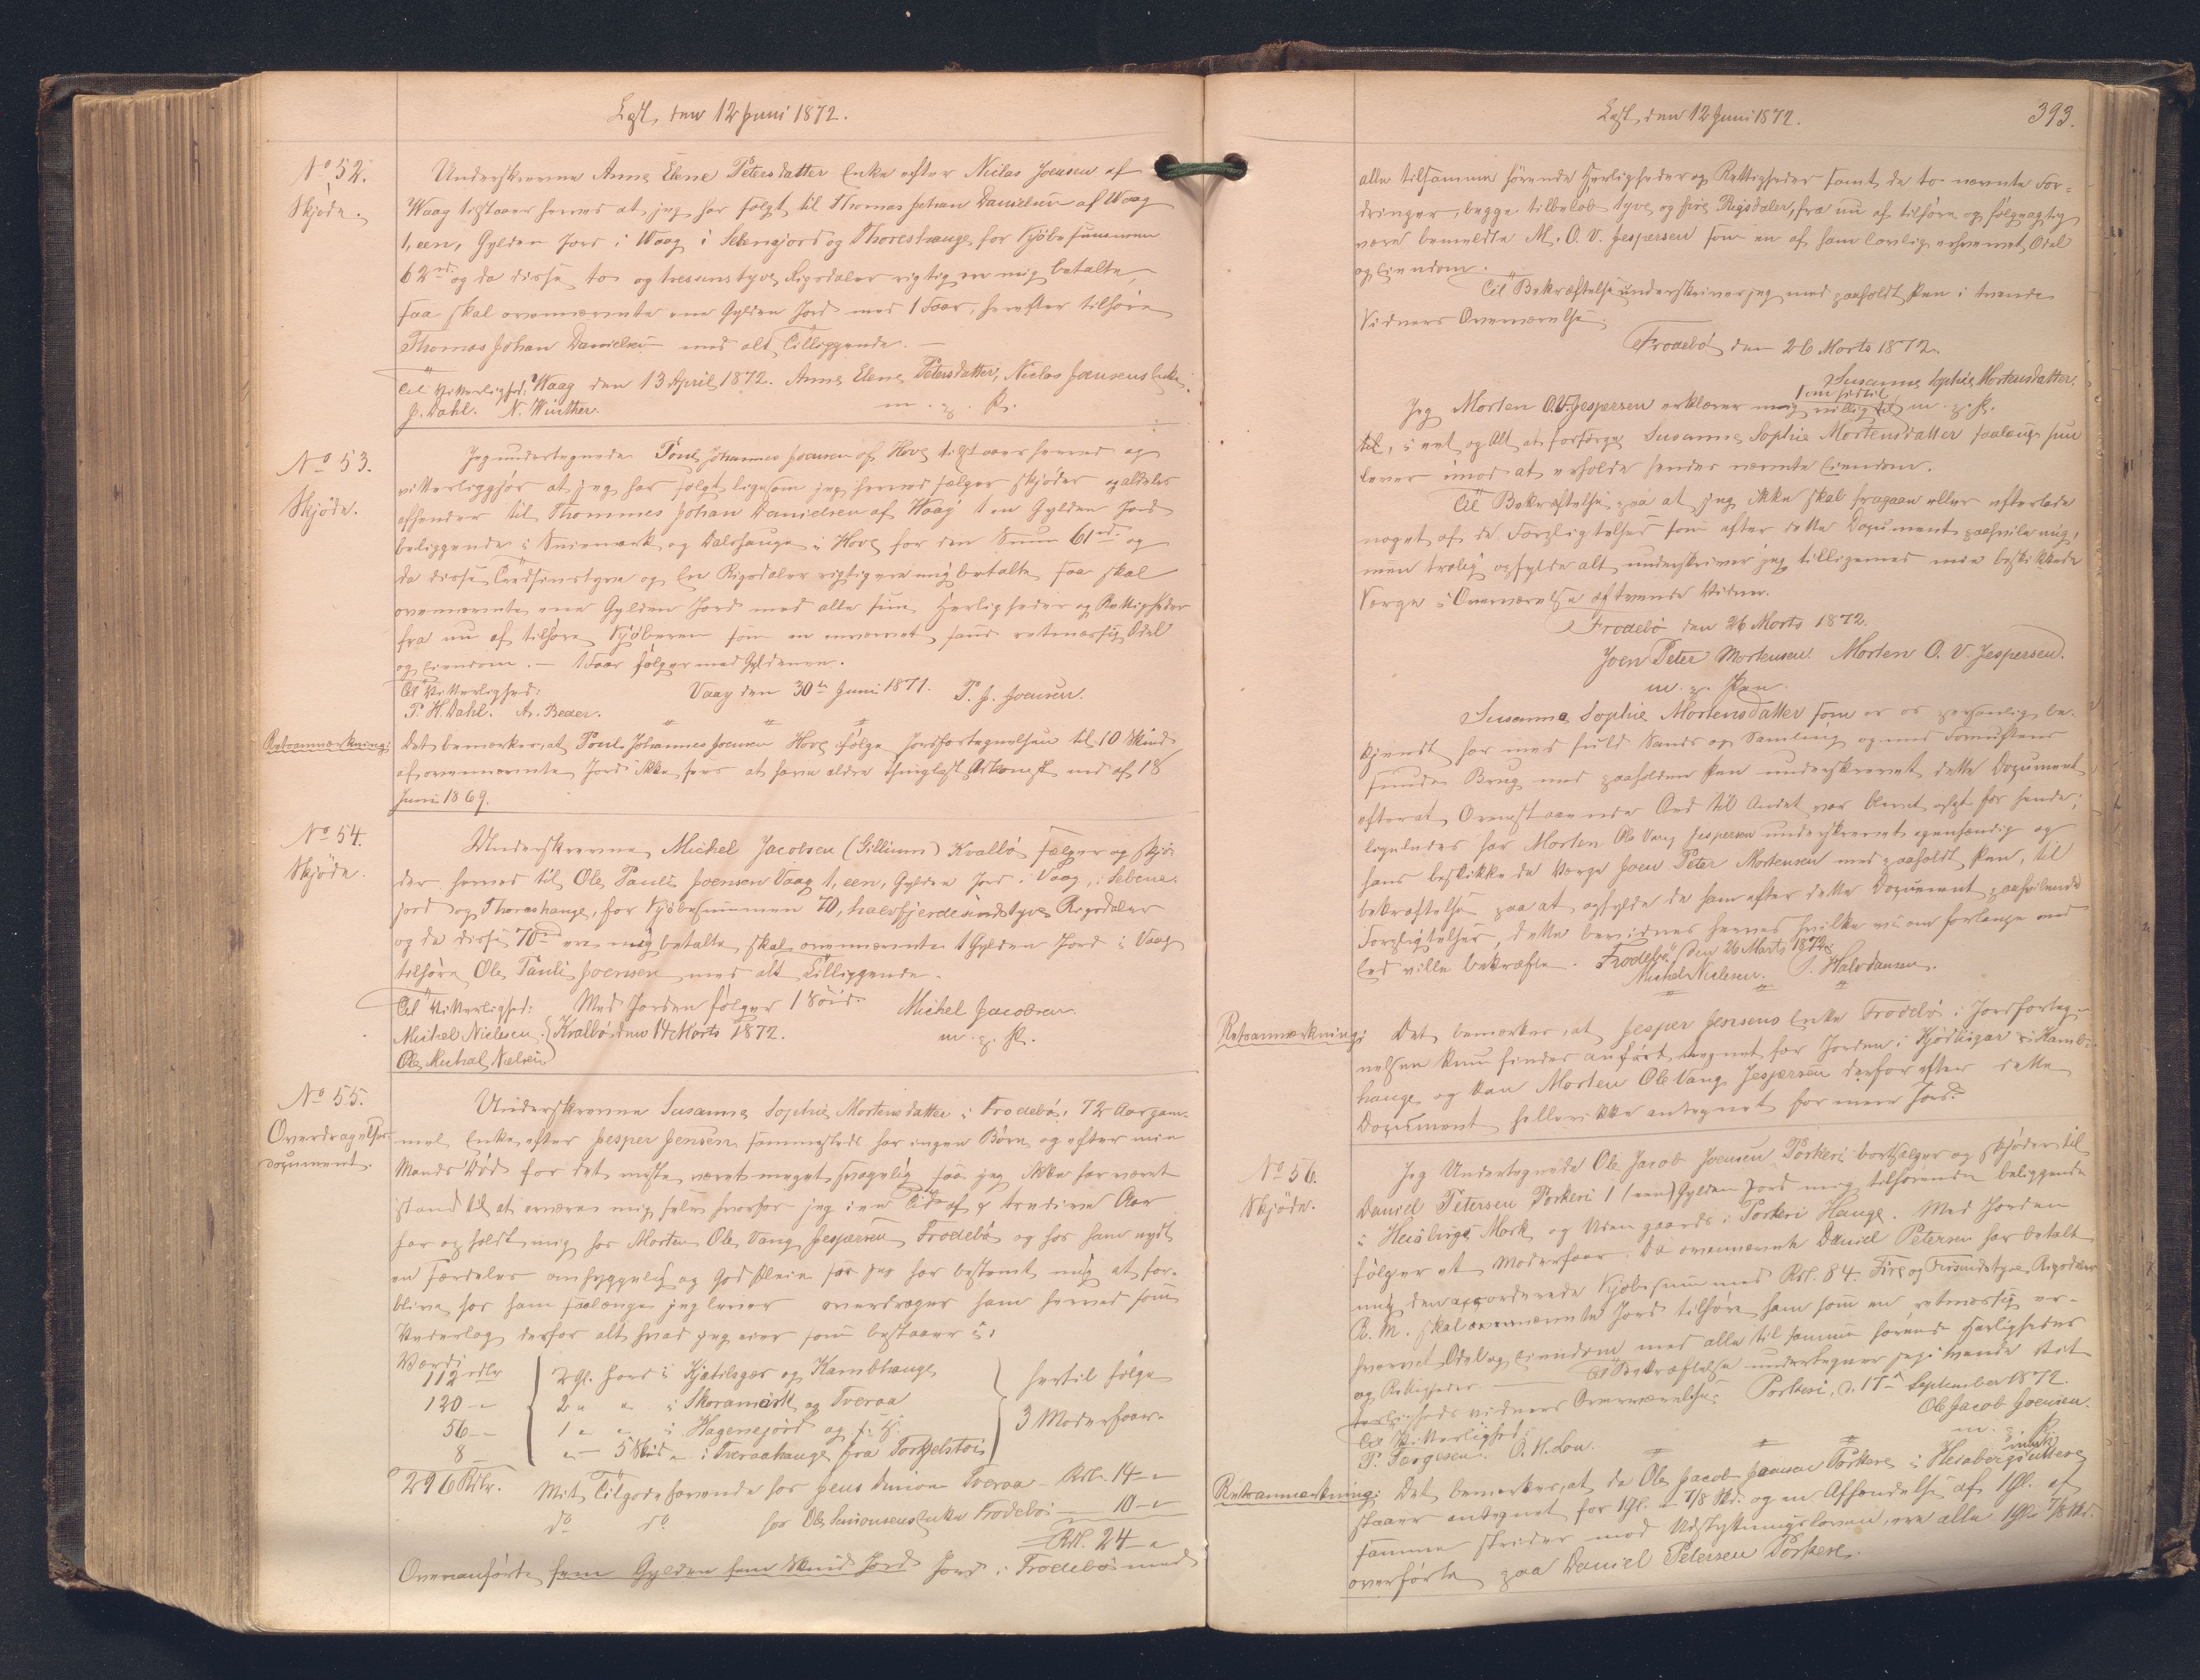 Læst, den 12 Juni 1872.
No 52.
Skjøde.
Underskrevne Anne Elene Petersdatter Enke efter Niclas Joensen af
Waag tilstaaer herved at jeg har solgt til Thomas Johan Danielsen af Waag
1, een, Gylden Jord i Waag i Sebenejord og Thoreshauge for Kjøbesummen
62 rd. og da disse to og tressenstyve Rigsdaler rigtig er mig betalte,
saa skal ovennævnte ene Gylden Jord med 1 Faar, herefter tilhøre
Thomas Johan Danielsen med alt Tilliggende. —
Til Vitterlighed: Waag den 13 April 1872. Anne Elene Petersdatter, Niclas Joensens Enke.
J. Dahl. N. Winther. m. p. P.
No 53.
Skjøde.
Jeg undertegnede Poul Johannes Joensen af Hove tilstaaer herved og
vitterliggjør at jeg har solgt ligesom jeg herved sælger skjøder og aldeles
afhender til Thommes Johan Danielsen af Waag 1 en Gylden Jord
beliggende i Sniemark og Dalshauge i Hove for den Sum 61 rd. og
da disse Tredsinstyve og En Rigsdaler rigtig ere mig betalte saa skal
ovennævnte ene Gylden Jord med alle sine Herligheder og Rettigheder
fra nu af tilhøre Kjøberen som en erhvervet sand retmæssig Odel
og Eiendom. — 1 Faar følger med Gyldenen.
Til Vitterlighed: Vaag den 30te Juni 1871. P. J. Joensen.
P. H. Dahl. A. Beder.
Retsanmærkning:
Det bemærkes, at Poul Johannes Joensen Hove ifølge Jordfortegnelsen til 10 Skind
af ovennævnte Jord ikke sees at have ældre thinglæst Adkomst end af 18
Juni 1869.
No 54.
Skjøde.
Underskrevne Michel Jacobsen (Gillium) Kvalbø sælger og skjø-
der herved til Ole Pauli Joensen Vaag 1, een, Gylden Jord i Vaag, i Sebene-
jord og Thoreshauge, for Kjøbesummen 70, halvfjerdesindstyve Rigsdaler
og da disse 70 rd ere mig betalte skal ovennævnte 1 Gylden Jord i Vaag
tilhøre Ole Pauli Joensen med alt Tilliggende.
Til Vitterlighed: Med Jorden følger 1 Søid. Michel Jacobsen
Michel Nielsen. Kvalbø den 14 Marts 1872. m. p. P.
Ole Michal Nielsen
No 55.
Overdragelses-
document.
Underskrevne Susanne Sophie Mortensdatter i Frodebø, 72 Aar gam-
mel Enke efter Jesper Jensen sammesteds har ingen Børn og efter min
Mands Død for det meste været meget svagelig saa jeg ikke har været
istand til at ernære mig selv hvorfor jeg i en Tid af 7 tredive Aar
har opholdt mig hos Morten Ole Vang Jespersen Frodebø og hos ham nydt
en særdeles omhyggelig og God Pleie før jeg har bestemt mig at for-
blive hos ham saalænge jeg lever overdrager ham herved som
Vederlag derfor alt hvad jeg eier som bestaaer i:
Værdi
112 rdlr 2 Gl. Jord i Kjætilsgær og Kambhauge hertil følge
120 – " 2 " " i Skoramark og Tveraa 3 Moderfaar.
56 – " 1 " " i Hagenejord og f. H.
8 – " – 5 Skind " i Tveraahauge fra Torkjelstoi
296 Rdlr. Mit Tilgodehavende hos Jens Simon Tveraa Rdl. 14 – "
do do hos Ole Simonsens Enke Frodebø — 10 – "
Rdl. 24 – "
Ovenanførte fem Gylden fem Skind Jord Jord i Frodebø med
Læst, den 12 Juni 1872.
393.
alle tilsamme hørende Herligheder og Rettigheder samt de to nævnte For-
dringer, begge tilbeløb tyve og fire Rigsdaler, fra nu af tilhøre og følgagtig
være bemeldte M. O. V. Jespersen som en af ham lovlig erhvervet Odel
og Eiendom.
Til Bekræftelse underskriver jeg med paaholdt Pen i tvende
Vidners Overværelse.
Frodebø den 26 Marts 1872.
Susanne Sophie Mortensdatter.
Jeg Morten O. V. Jespersen erklærer mig villig til m. p. P.
til, i eet og Alt at forsørge Susanne Sophie Mortensdatter saalænge hun
lever imod at erholde hendes nævnte Eiendom.
Til Bekræftelse paa at jeg ikke skal fragaae eller efterlade
noget af de Forpligtelser som efter dette Document paahvile mig,
men trolig opfylde alt underskriver jeg tilligemed min beskikkede
Værge i Overværelse af tvende Vidner.
Frodebø den 26 Marts 1872.
Joen Peter Mortensen. Morten O. V. Jespersen.
m. p. Pen.
Susanne Sophie Mortensdatter som er os personlig be-
kjendt har med fuld Sands og Samling og med Fornuftens
sunde Brug med paaholden Pen underskrevet dette Document
efterat Ovenstaaende Ord til Andet var blevet oplæst for hende;
ligeledes har Morten Ole Vang Jespersen underskrevet egenhændig og
hans beskikkede Værge Joen Peter Mortensen med paaholdt Pen, til
bekræftelse paa at opfylde de ham efter dette Document paahvilende
Forpligtelser, dette bevidnes herved hvilke vi om forlanges med
Eed ville bekræfte. Frodebø den 26 Marts 1872.
Michel Nielsen. J. Halvdansen.
Retsanmærkning:
Det bemærkes, at Jesper Jensens Enke Frodebø i Jordforteg-
nelsen kun findes anført tegnet for Jorden i Kjødlsgar i Kamb-
hauge og kan Morten Ole Vang Jespersen derfor efter dette
Document heller ikke antegnet for mere Jord.
No 56.
Skjøde.
Jeg Undertegnede Ole Jacob Joensen Porkeri bortsælger og skjøder til
Daniel Petersen Porkeri 1 (een) Gylden Jord mig tilhørende beliggende
i Heiabirgs Mark og Uden gaards i Porkeri Hauge. Med Jorden
følger et Moderfaar. Da ovennævnte Daniel Petersen har betalt
mig den accorderede Kjøbesum med Rdl. 84. Fire og Firsindstyve Rigsdaler
R. M. skal ovennævnte Jord tilhøre ham som en retmæssig er-
hvervet Odel og Eiendom med alle til samme hørende Herligheder
og Rettigheder. — Til Bekræftelse undertegner jeg i tvende
vidners Overværelse. Porkeri, d. 17de September 1872.
Til Vitterlighed: Ole Jacob Joensen.
P. Torgesen. O. H. Lon. m. p. P.
Retsanmærkning:
Det bemærkes, at da Ole Jacob Joensen Porkere i Heiabergs
staaer antegnet for 1 Gl. " 7/8 Sk. og en Afhændelse af 1 Gl. af
samme strider mod Udstykningsloven, ere alle 1 Gl. 7/8 Sk.
overførte paa Daniel Petersen Porkere.